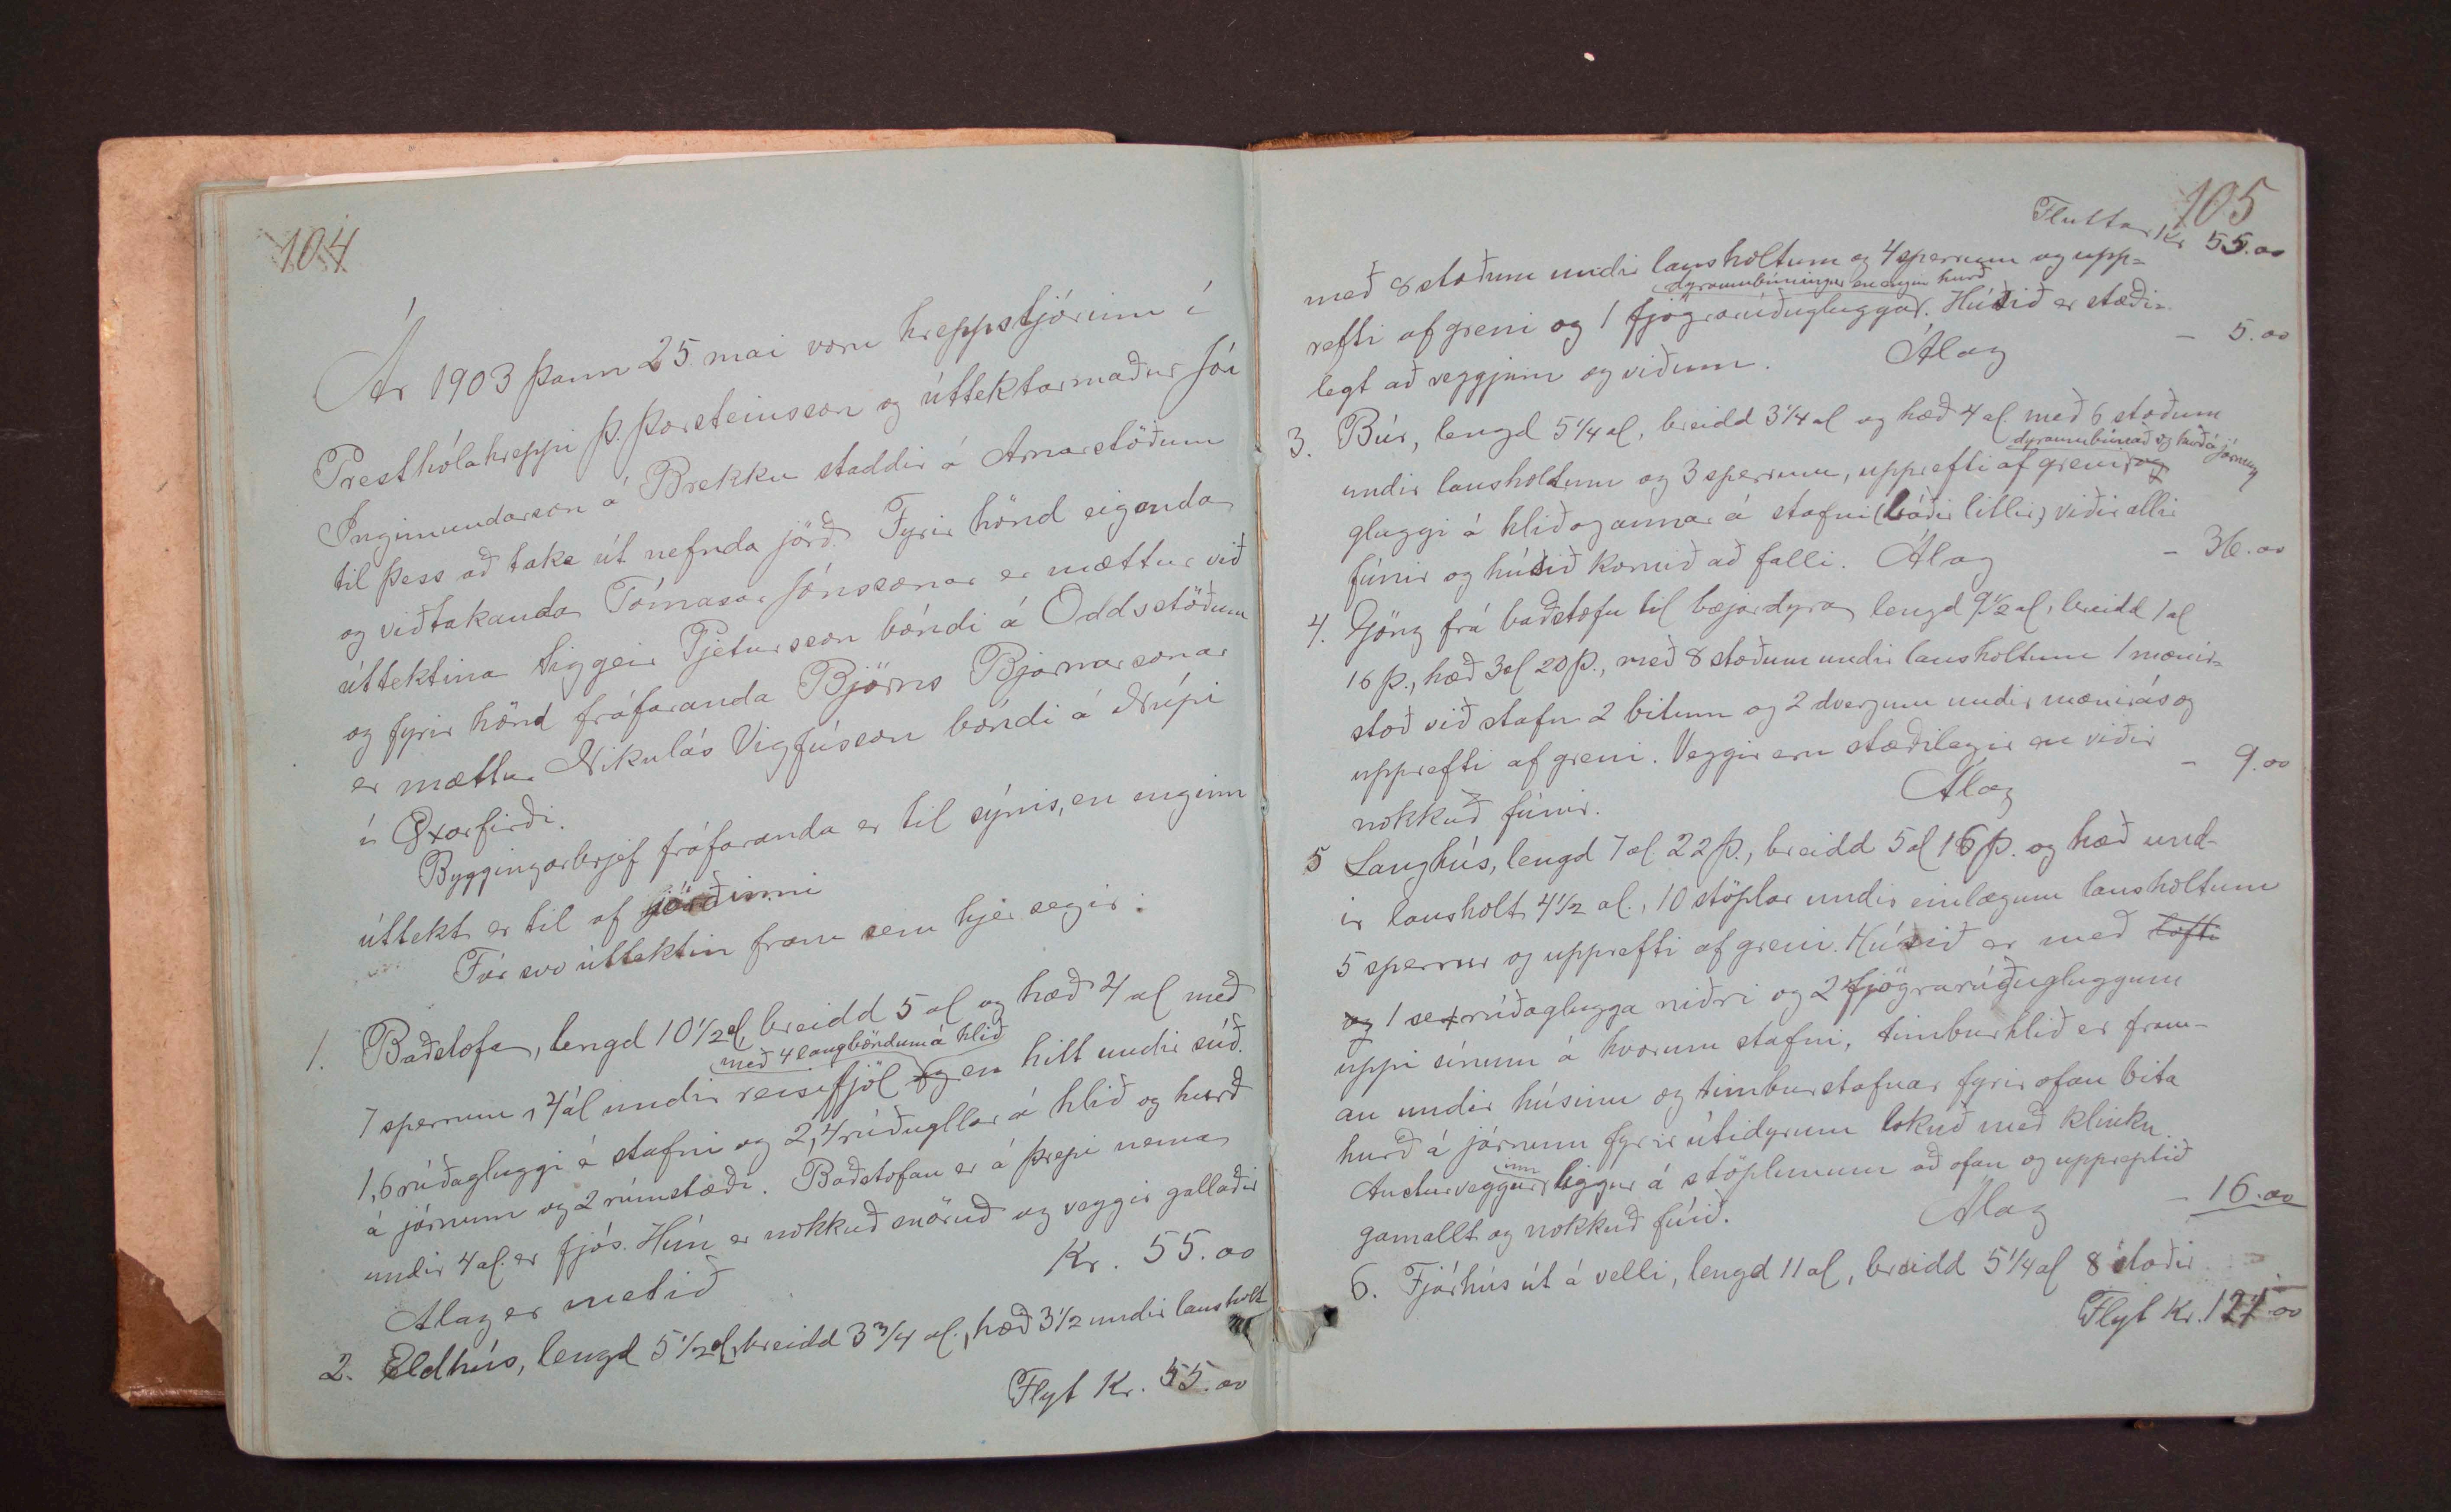 104
Ár 1903 þann 25. mai voru hreppstjórinn í
Presthólahreppi Þ. Þorsteinsson og úttektarmaður Jón
Ingimundarson á Brekku staddir á Arnarstöðum
til þess að taka út nefnda jörð. Fyrir hönd eiganda
og viðtakanda Tómasar Jónssonar er mættur við
úttektina Siggeir Pjetursson bóndi á Oddsstöðum
og fyrir hönd fráfaranda Björns Bjarnarsonar
er mættur Nikulás Vigfússon bóndi á Núpi
í Öxarfirði.
Byggingarbrjef fráfaranda er til sýnis, en enginn
úttekt er til af jörðinni
Fór svo úttektin fram sem hjer segir:
1. Baðstofa, lengd 10 1/2 al, breidd 5 al og hæð 4 al með
með 4 langböndum á hlið
7 sperrum, 4 ál undir reisifjöl og en hitt undir súð.
1, 6 rúðagluggi á stafni og 2, 4 rúðugllar á hlið og hurð
á járnum og 2 rúmstæði. Baðstofan er á þrepi nema
undir 4 al. er fjós. Hún er nokkuð snöruð og veggir gallaðir
Álag er metið Kr. 55.00
2. Eldhús, lengd 5 1/2 al, breidd 3 3/4 al., hæð 3 1/2 undir lausholt
Flyt Kr. 55.00
105
Fluttar Kr 55.00
með 8 stoðum undir lausholtum og 4 sperrum og upp=
dyraumbúningur en engin hurð
refti af greni og 1 fjögrarúðugluggar. Húsið er stæði=
legt að veggjum og viðum. Álag - 5.00
3. Búr, lengd 5 1/4 al, breidd 3 1/4 al og hæð 4 al. með 6 stoðum
dyraumbúnað og hurð á járnum
undir lausholtum og 3 sperrum, upprefti af greni, og
gluggi á hlið og annar á stafni (báðir litlir) viðir allir
fúnir og húsið komið að falli. Álag - 36.00
4. Göng frá baðstofu til bæjardyra lengd 9 1/2 al, breidd 1 al
16 þ., hæð 3 al 20 þ., með 8 stoðum undir lausholtum 1 mænir=
stoð við stafn 2 bitum og 2 dvergum undir mænirás og
upprefti af greni. Veggir eru stæðilegir en viðir
nokkuð fúnir. Álag - 9.00
5 Langhús, lengd 7 al. 22 þ., breidd 5 al 16 þ. og hæð und-
ir lausholt 4 1/2 al., 10 stöplar undir einlægum lausholtum
5 sperrur og upprefti af greni. Húsið er með lofti
og 1 sexrúðaglugga niðri og 2 fjögrarúðugluggum
uppi sínum á hvorum stafni, timburhlið er fram-
an undir húsinu og timburstafnar fyrir ofan bita
hurð á járnum fyrir útidyrum lokuð með klinku.
inn
Austurveggur liggur á stöplunum að ofan og uppreptið
gamallt og nokkuð fúið. Álag - 16.00
6. Fjárhús út á velli, lengd 11 al, breidd 5 1/4 al 8 stoðir
Flyt Kr. 121.00